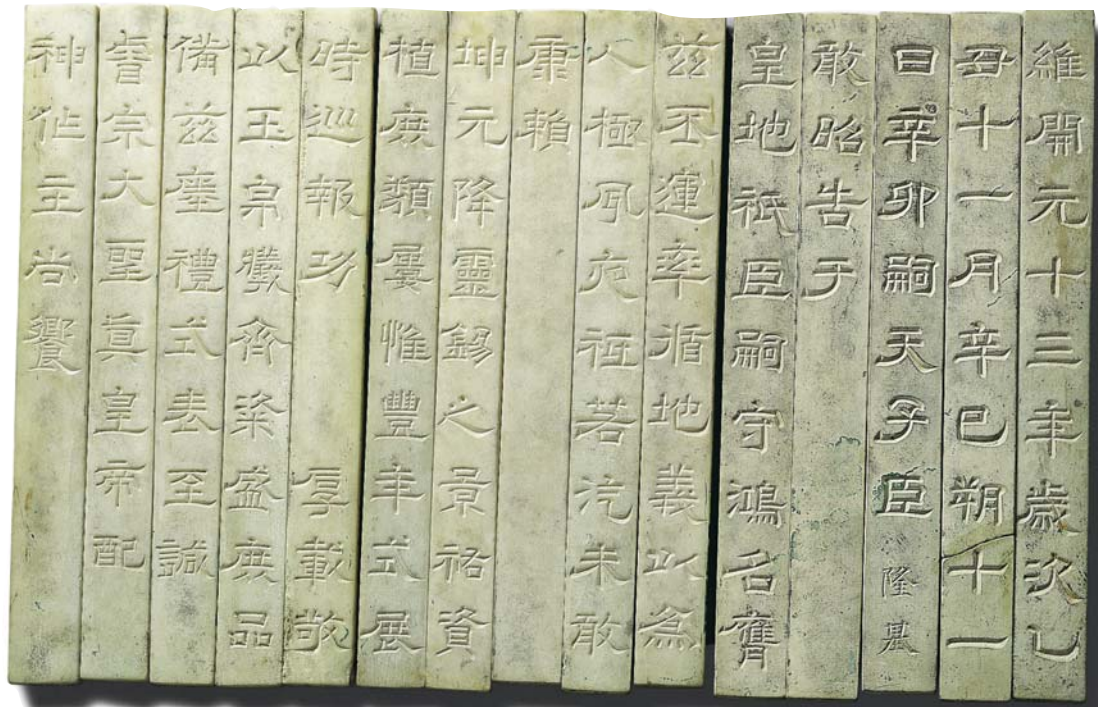 維開元十三年歲次乙
丑十一月辛巳朔十一
日辛卯嗣天子臣隆基
敢昭告于
皇地祇臣嗣守鴻名膺
兹丕運率循地義以爲
人極夙夜祗若汔未敢
康賴
坤元降靈錫之景祐資
植庶類屢惟豐年式展
時巡報功 厚載敬
以玉帛犧齊粢盛庶品
備兹瘞禮式表至誠
睿宗大聖真皇帝配
神作主尚饗